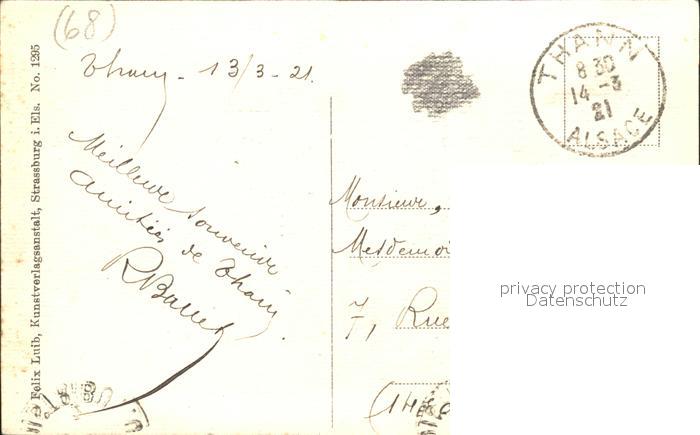 (68)
Thann - 13/3 - 21.
Meilleur souvenir
amitiés de Thann
R Ballet
Felix Luib, Kunstverlagsanstalt, Strassburg i. Els. No. 1295
THANN
8 30
14 - 3
21
ALSACE
Monsieur,
Mesdemoi
7, Rue
privacy protection
Datenschutz